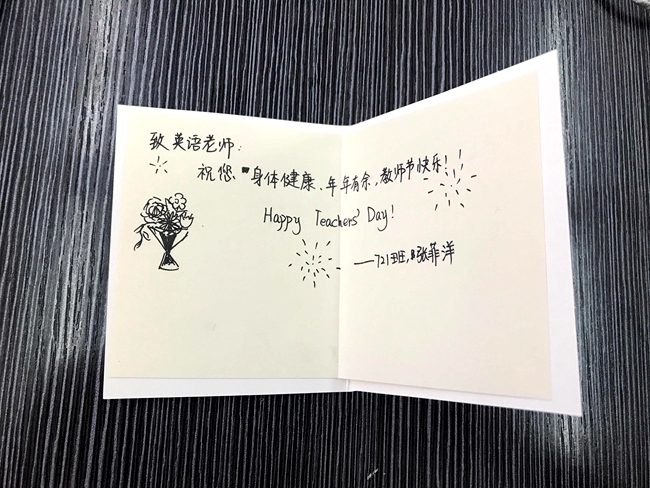 致英语老师:
祝您身体健康、年年有余,教师节快乐!
Happy Teachers' Day!
——721班,张菲洋